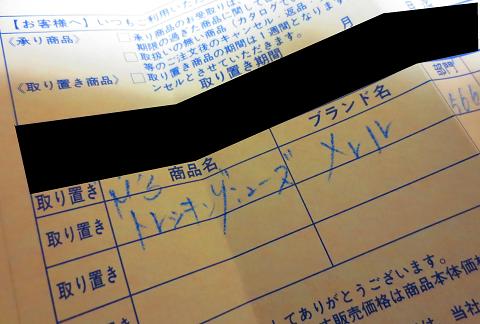 【お客様へ】いつもご利用いただ
《承り商品》 □承り商品のお受取りは
期限の過ぎた商品に関して
□取扱いの無い商品(カタログで
等のご注文後のキャンセル・返品
《取り置き商品》 □取り置き商品の期間は1週間となります
ンセルとさせていただきます。
取り置き期間 月
商品名 ブランド名 部門
取り置き M's トレッキングシューズ メレル 566
取り置き
取り置き
してありがとうございます。
す販売価格は商品本体価格
は、当社